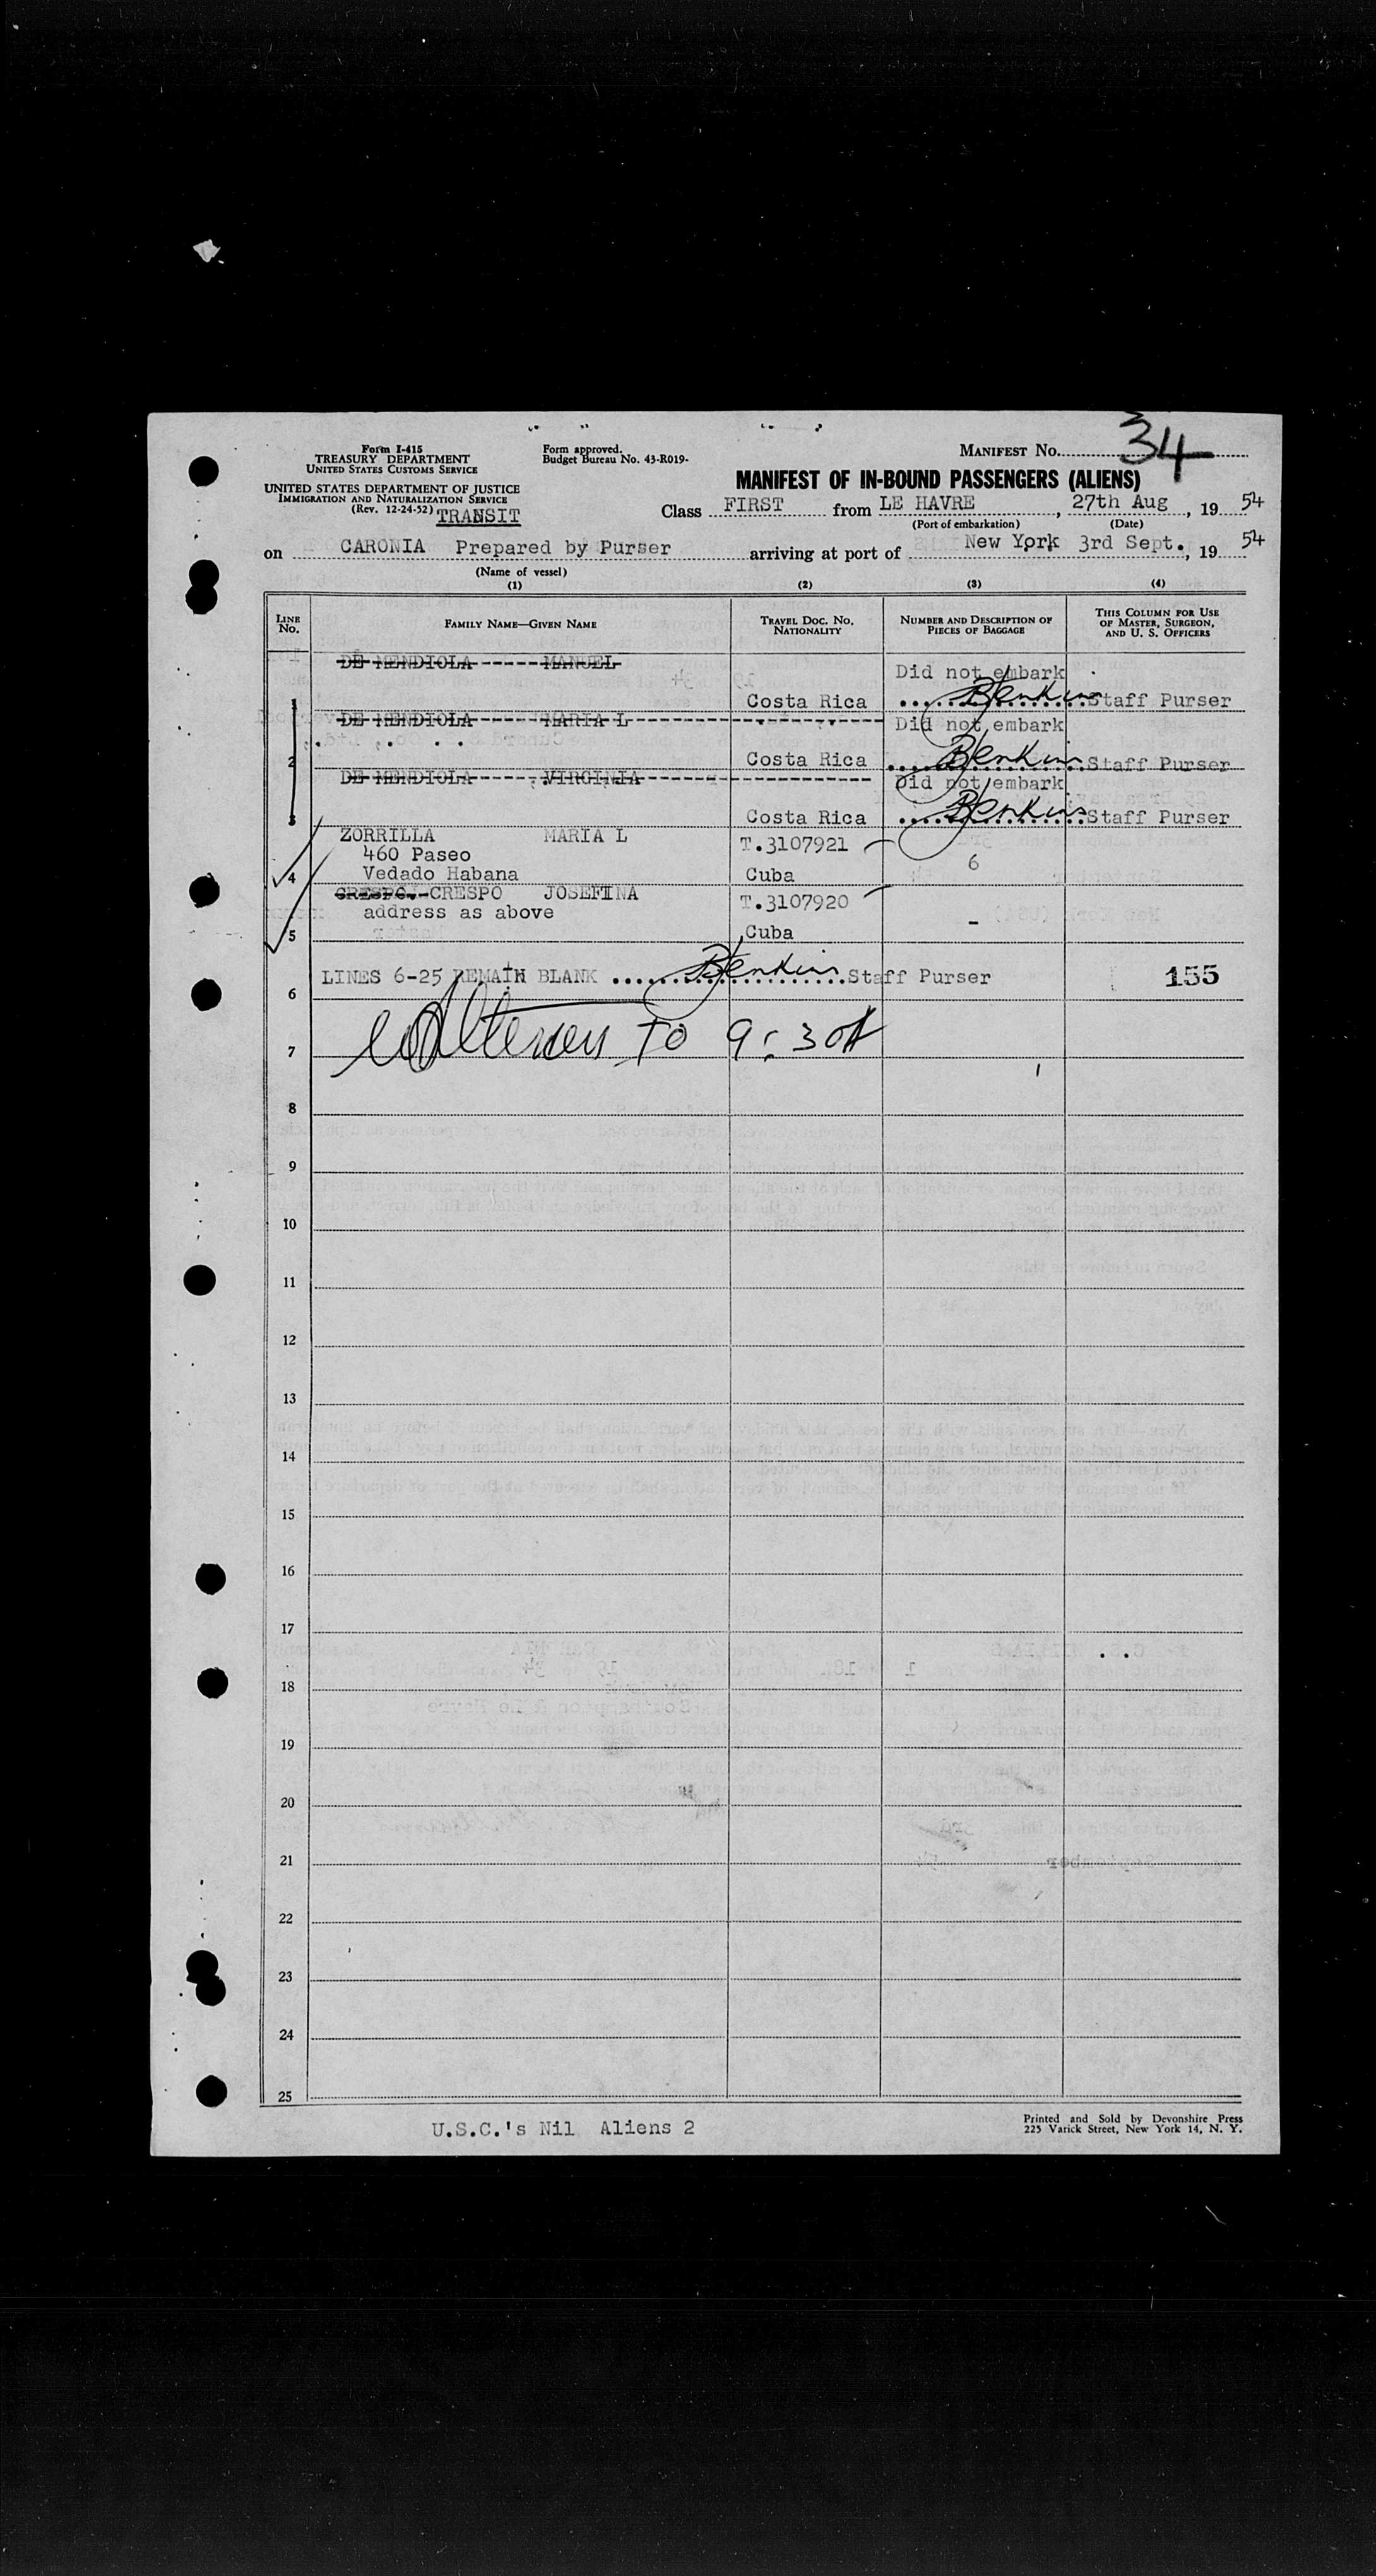 Form I-415
TREASURY DEPARTMENT
UNITED STATES CUSTOMS SERVICE
Form approved.
Budget Bureau No. 43-R019-
MANIFEST NO. 34
UNITED STATES DEPARTMENT OF JUSTICE
IMMIGRATION AND NATURALIZATION SERVICE
(Rev. 12-24-52) TRANSIT
MANIFEST OF IN-BOUND PASSENGERS (ALIENS)
Class FIRST from LE HAVRE, 27th Aug, 19 54
(Port of embarkation) (Date)
on CARONIA Prepared by Purser arriving at port of New York 3rd Sept., 19 54
(Name of vessel)
(1) (2) (3) (4)
LINE No. FAMILY NAME—GIVEN NAME TRAVEL DOC. NO. NATIONALITY NUMBER AND DESCRIPTION OF PIECES OF BAGGAGE THIS COLUMN FOR USE OF MASTER, SURGEON, AND U. S. OFFICERS
DE MENDIOLA MANUEL Did not embark
1 Costa Rica Jenkins Staff Purser
DE MENDIOLA MARIA L Did not embark
2 Costa Rica Jenkins Staff Purser
DE MENDIOLA VIRGINIA Did not embark
3 Costa Rica Jenkins Staff Purser
ZORRILLA MARIA L T.3107921
460 Paseo 6
4 Vedado Habana Cuba
CRESPO. CRESPO JOSEFINA T.3107920
address as above -
5 Cuba
LINES 6-25 REMAIN BLANK Jenkins Staff Purser 155
6
7 TO 9:30
8
9
10
11
12
13
14
15
16
17
18
19
20
21
22
23
24
25
U.S.C.'s Nil Aliens 2
Printed and Sold by Devonshire Press
225 Varick Street, New York 14, N. Y.